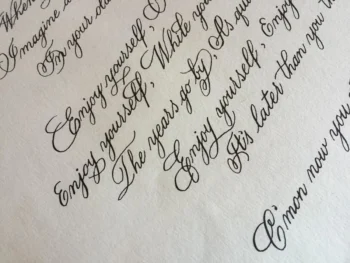 When
Imagine
In your
Enjoy yourself,
Enjoy yourself, While you
The years go by, As
Enjoy yourself, Enjoy
It's later than you
C'mon now you